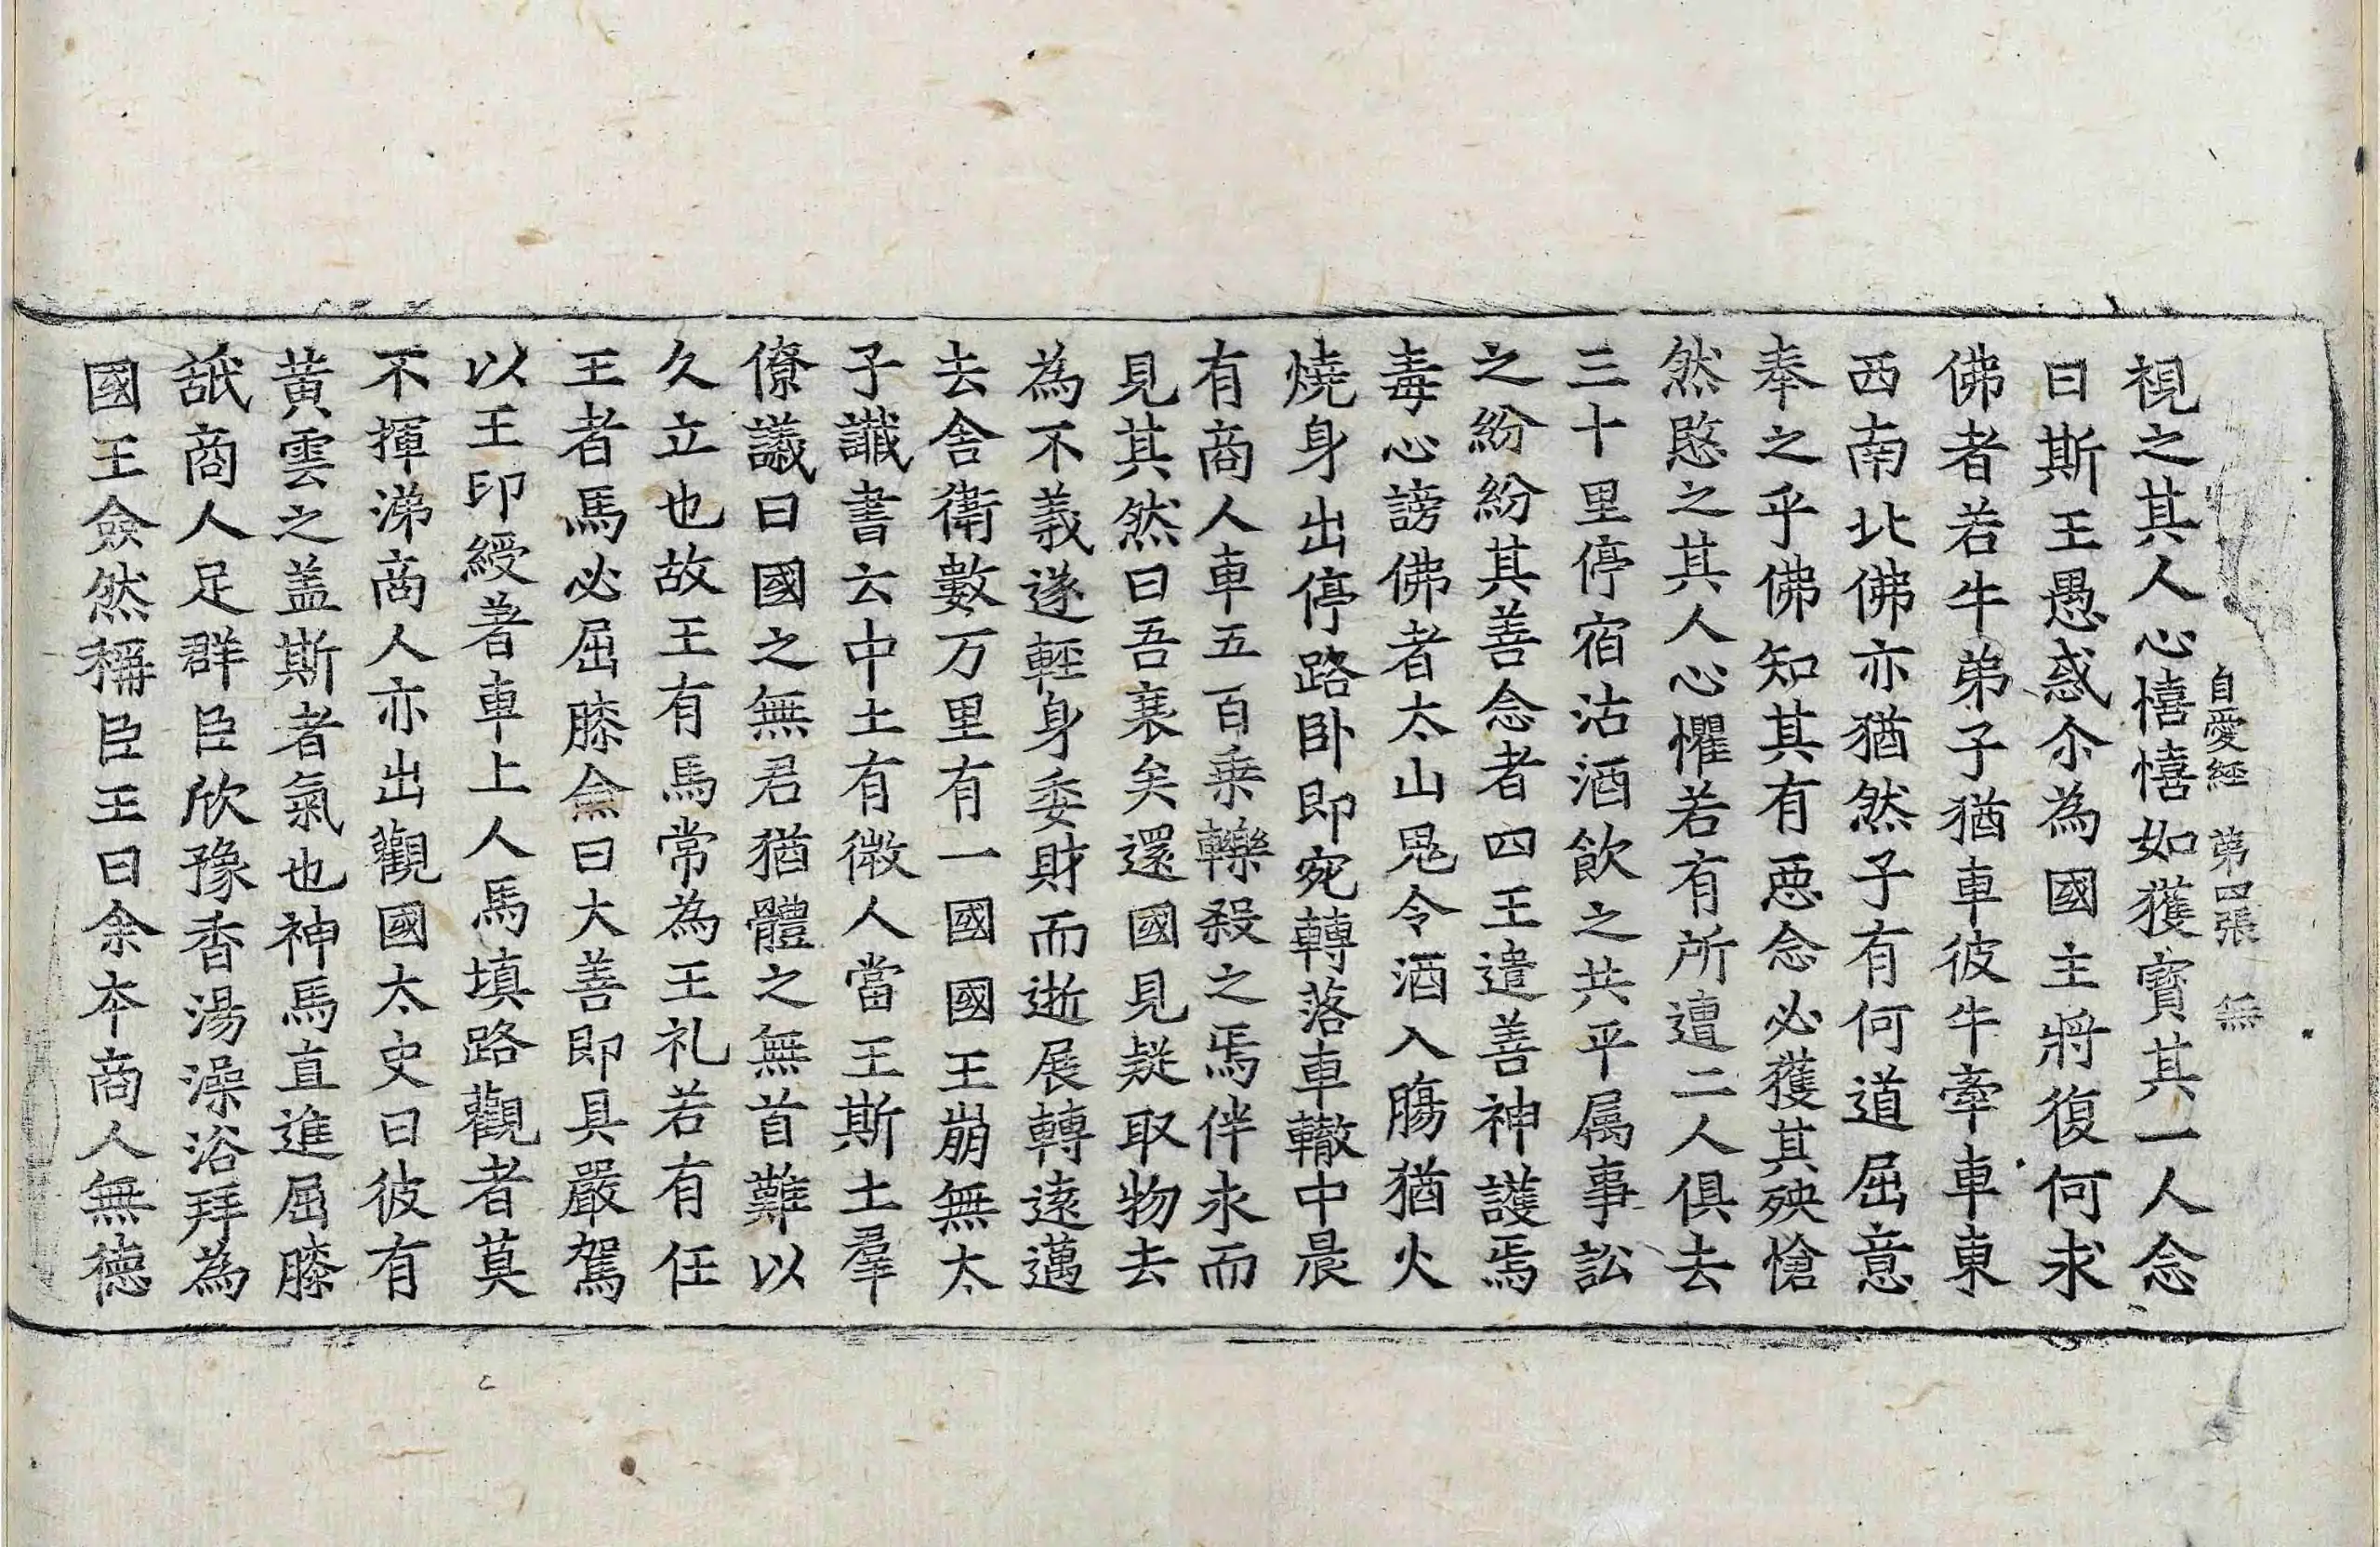 自愛經 第四張 無
視之其人心憘憘如獲寳其一人念
曰斯王愚惑尒為國主將復何求
佛者若牛弟子猶車彼牛牽車東
西南北佛亦猶然子有何道屈意
奉之乎佛知其有惡念必獲其殃愴
然愍之其人心懼若有所遭二人俱去
三十里停宿沽酒飲之共平属事訟
之紛紛其善念者四王遣善神護焉
毒心謗佛者太山鬼令酒入膓猶火
燒身出停路卧即宛轉落車轍中晨
有商人車五百乗轢殺之焉伴求而
見其然曰吾衰矣還國見疑取物去
為不義遂輕身委財而逝展轉遠邁
去舎衛數万里有一國國王崩無太
子讖書云中土有微人當王斯土羣
僚議曰國之無君猶體之無首難以
久立也故王有馬常為王礼若有任
王者馬必屈膝僉曰大善即具嚴駕
以王印綬著車上人馬填路觀者莫
不揮涕商人亦出觀國太史曰彼有
黄雲之盖斯者氣也神馬直進屈膝
舐商人足群臣欣豫香湯澡浴拜為
國王僉然稱臣王曰余本商人無徳